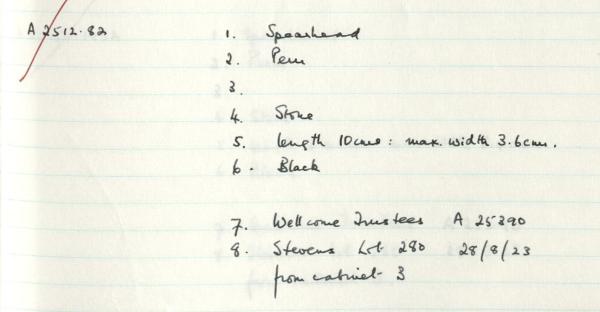 A 2512.82
1. Spearhead
2. Peru
3.
4. Stone
5. length 10cms: max. width 3.6cms.
6. Black
7. Wellcome Trustees A 25390
8. Stevens Lot 280 28/8/23
from cabinet 3